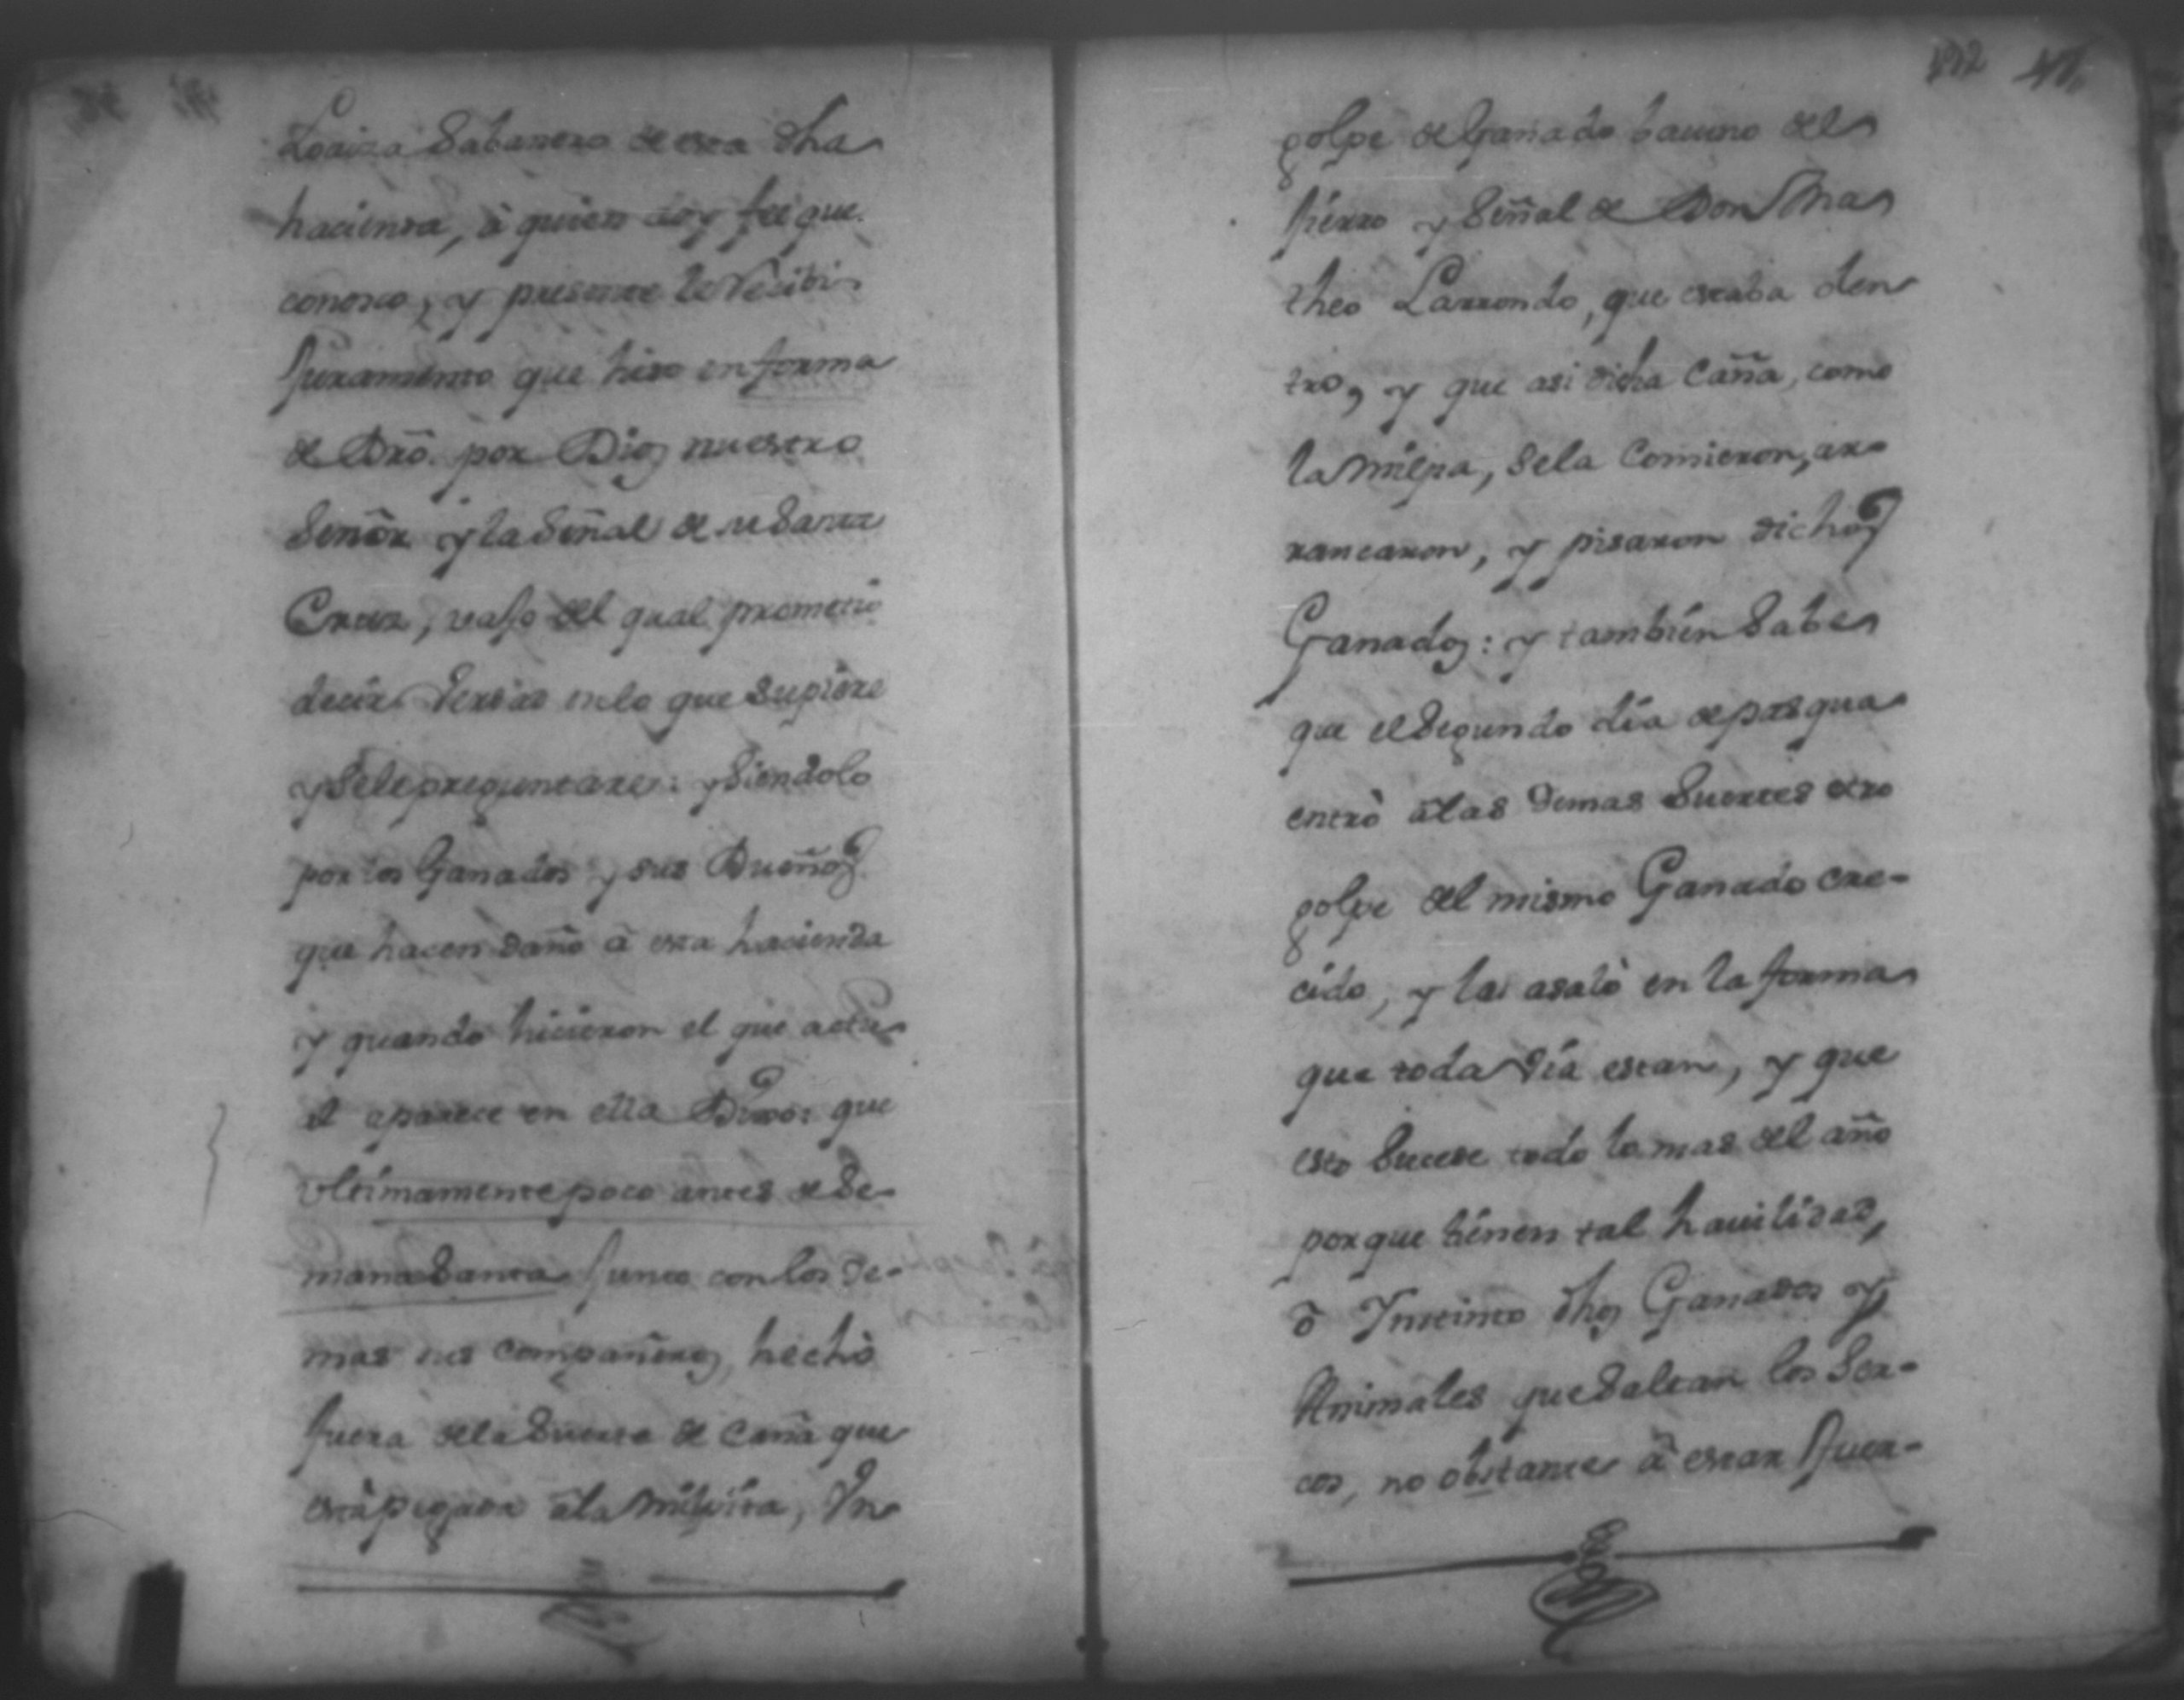 Loaiza Sabanero de esta dha
hacienda, à quien doy fee que
conosco, y presente le recibi
Juramento que hizo en forma
de Dro. por Dios nuestro
Señor y la Señal de su Santa
Cruz, vajo del qual prometio
decir Verdad en lo que Supiere
y Sele preguntare: y Siendolo
por los Ganados y sus Dueños
que hacen daño à esta hacienda
y quando hicieron el que actu-
al aparece en ella Dixo: que
Ultimamente poco antes de Se-
mana Santa Junto con los de-
mas sus compañeros, hechò
fuera dela Suerte de Caña que
està pegada à la milpita, Un
192
golpe de Ganado bacuno del
fierro y Señal de Don Ma
theo Larrondo, que estaba den
tro, y que asi dicha Caña, como
la milpa, Sela Comieron, ar-
rancaron, y pisaron dichos
Ganados: y tambien Sabe
que el Segundo dia de pasqua
entrò à las demas Suertes otro
golpe del mismo Ganado cre-
cido, y las asolò en la forma
que toda via estan, y que
esto Sucede todo lo mas del año
por que tienen tal havilidad,
ò Ynstinto dhos Ganados y
Animales que Saltan los Ser-
cos, no obstante à estar fuer-